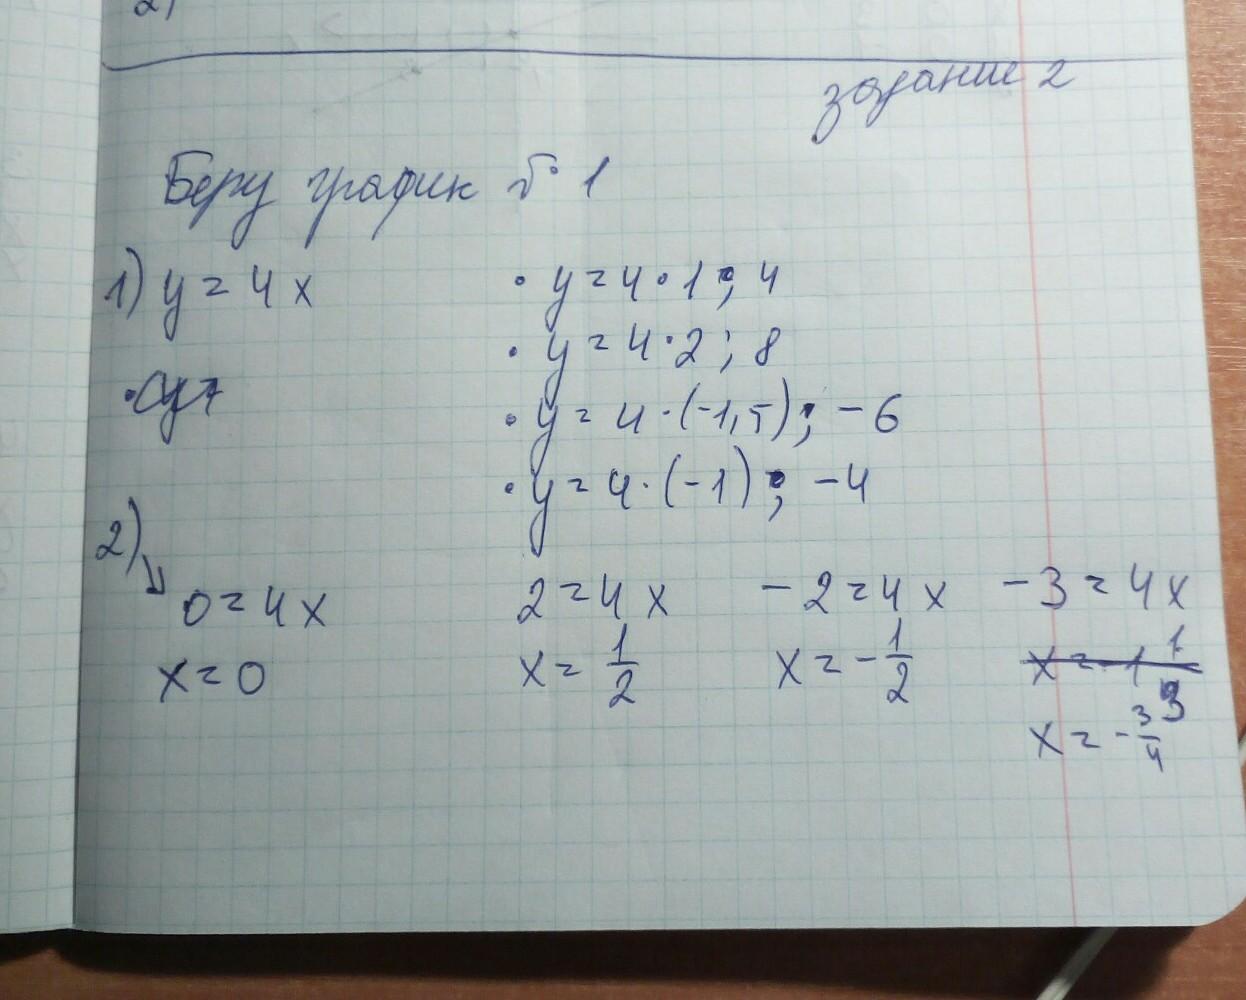 2)
задание 2
Беру график № 1
1) y = 4x
• y = 4 • 1 ; 4
• y = 4 · 2 ; 8
• y = 4 · (-1,5) ; -6
• y = 4 · (-1) ; -4
2)
0 = 4x
x = 0
2 = 4x
x = 1/2
-2 = 4x
x = -1/2
-3 = 4x
x = -1 1/3
x = -3/4